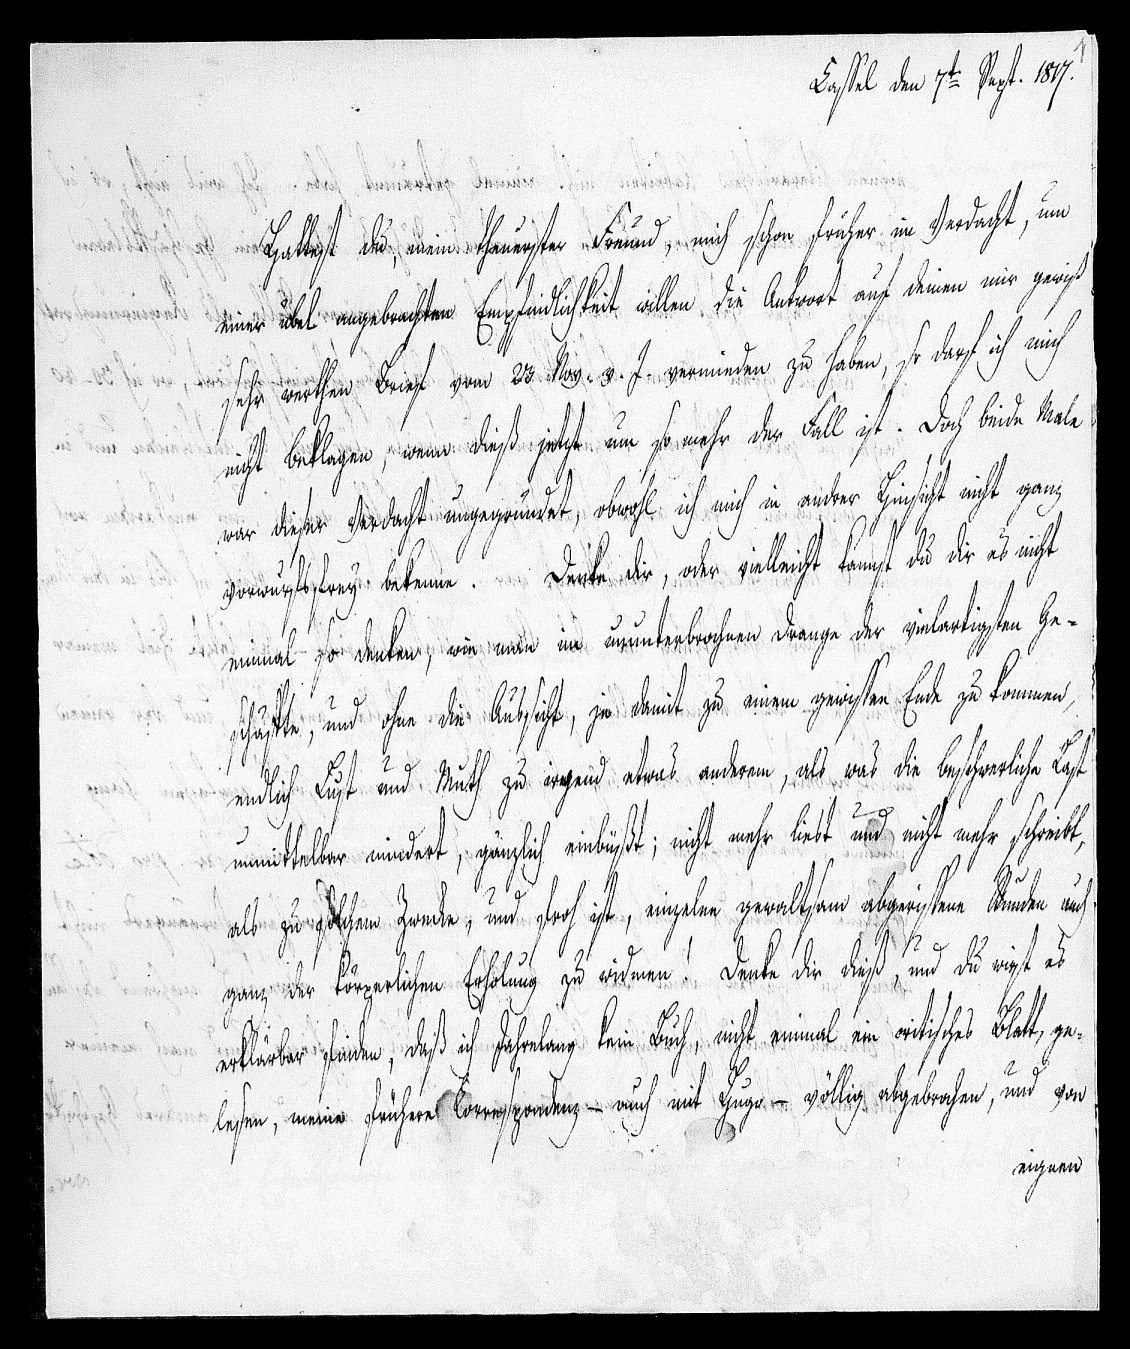 Cassel den 7ten Sept. 1817.
Hattest du, mein theuerster Freund, mich schon früher in Verdacht, um
einer übel angebrachten Empfindlichkeit willen die Antwort auf deinen mir gewiß
sehr werthen Brief vom 23 Nov. v. J. vermieden zu haben, so darf ich mich
nicht beklagen, wenn dieß jetzt um so mehr der Fall ist. Doch beide Male
war dieser Verdacht ungegründet, obwohl ich mich in andrer Hinsicht nicht ganz
vorwurfsfrey bekenne. Denke dir, oder vielleicht kannst du dir es nicht
einmal so denken, wie man im ununterbrochnen Drange der vielartigsten Ge-
schäffte, und ohne die Aussicht, je damit zu einem gewissen Ende zu kommen,
endlich Lust und Muth zu irgend etwas anderem, als was die beschwerliche Last
unmittelbar mindert, gänzlich einbüßt; nicht mehr liest und nicht mehr schreibt,
als zu solchem Zwecke, und froh ist, einzelne gewaltsam abgerissene Stunden auch
ganz der körperlichen Erholung zu widmen! Denke dir dieß, und du wirst es
erklärbar finden, daß ich Jahrelang kein Buch, nicht einmal ein critisches Blatt, ge-
lesen, meine frühere Correspondenz – auch mit Hugo – völlig abgebrochen, und von
eignen